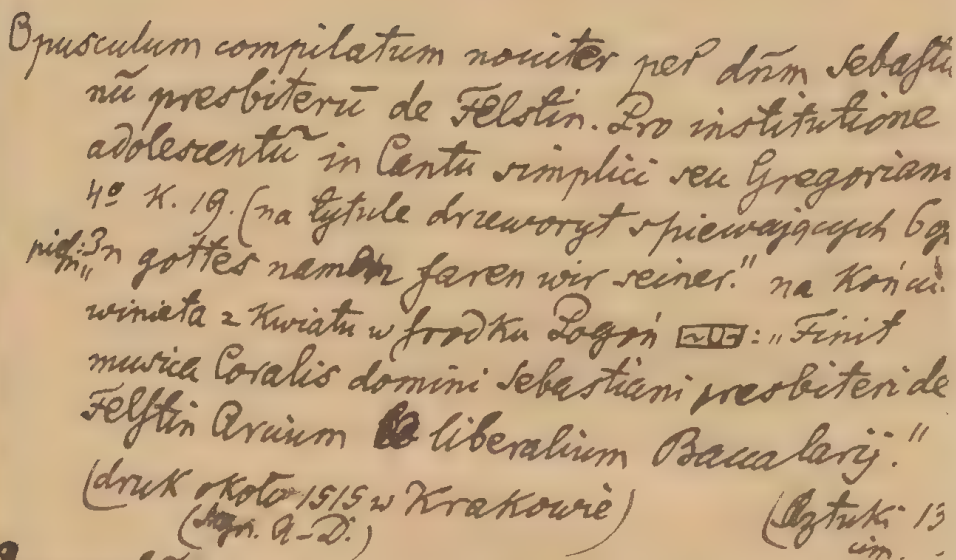 Opusculum compilatum nouiter per dn̄m Sebasti
nū presbiterū de Felstin. Pro institutione
adolescentū in Cantu simplici seu Gregorian
4º K. 19. (na tytule drzeworyt śpiewających 6
pieś: „In gottes namen faren wir seiner." na końcu
winieta z kwiatu w środku Pogoń : „Finit
musica Coralis domini Sebastiani presbiteri de
Felstin Arcium liberalium Baccalarij."
(druk około 1515 w Krakowie) (Sztuki 13
(sygn. A-D.) cim.